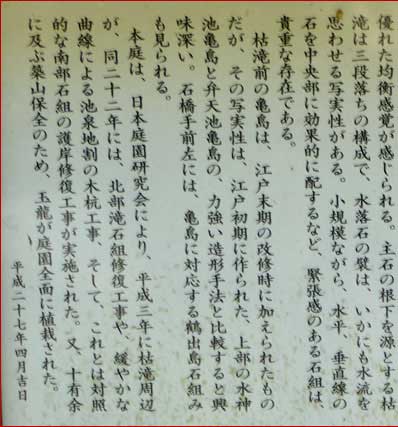 優れた均衡感覚が感じられる。主石の根下を源とする枯
滝は三段落ちの構成で、水落石の襞は、いかにも水流を
思わせる写実性がある。小規模ながら、水平、垂直線の
石を中央部に効果的に配するなど、緊張感のある石組は
貴重な存在である。
枯滝前の亀島は、江戸末期の改修時に加えられたもの
だが、その写実性は、江戸初期に作られた、上部の水神
池亀島と弁天池亀島の、力強い造形手法と比較すると興
味深い。石橋手前左には、亀島に対応する鶴出島石組み
も見られる。
本庭は、日本庭園研究会により、平成三年に枯滝周辺
が、同二十二年には、北部滝石組修復工事や、緩やかな
曲線による池泉地割の木杭工事、そして、これとは対照
的な南部石組の護岸修復工事が実施された。又、十有余
に及ぶ築山保全のため、玉龍が庭園全面に植栽された。
平成二十七年四月吉日